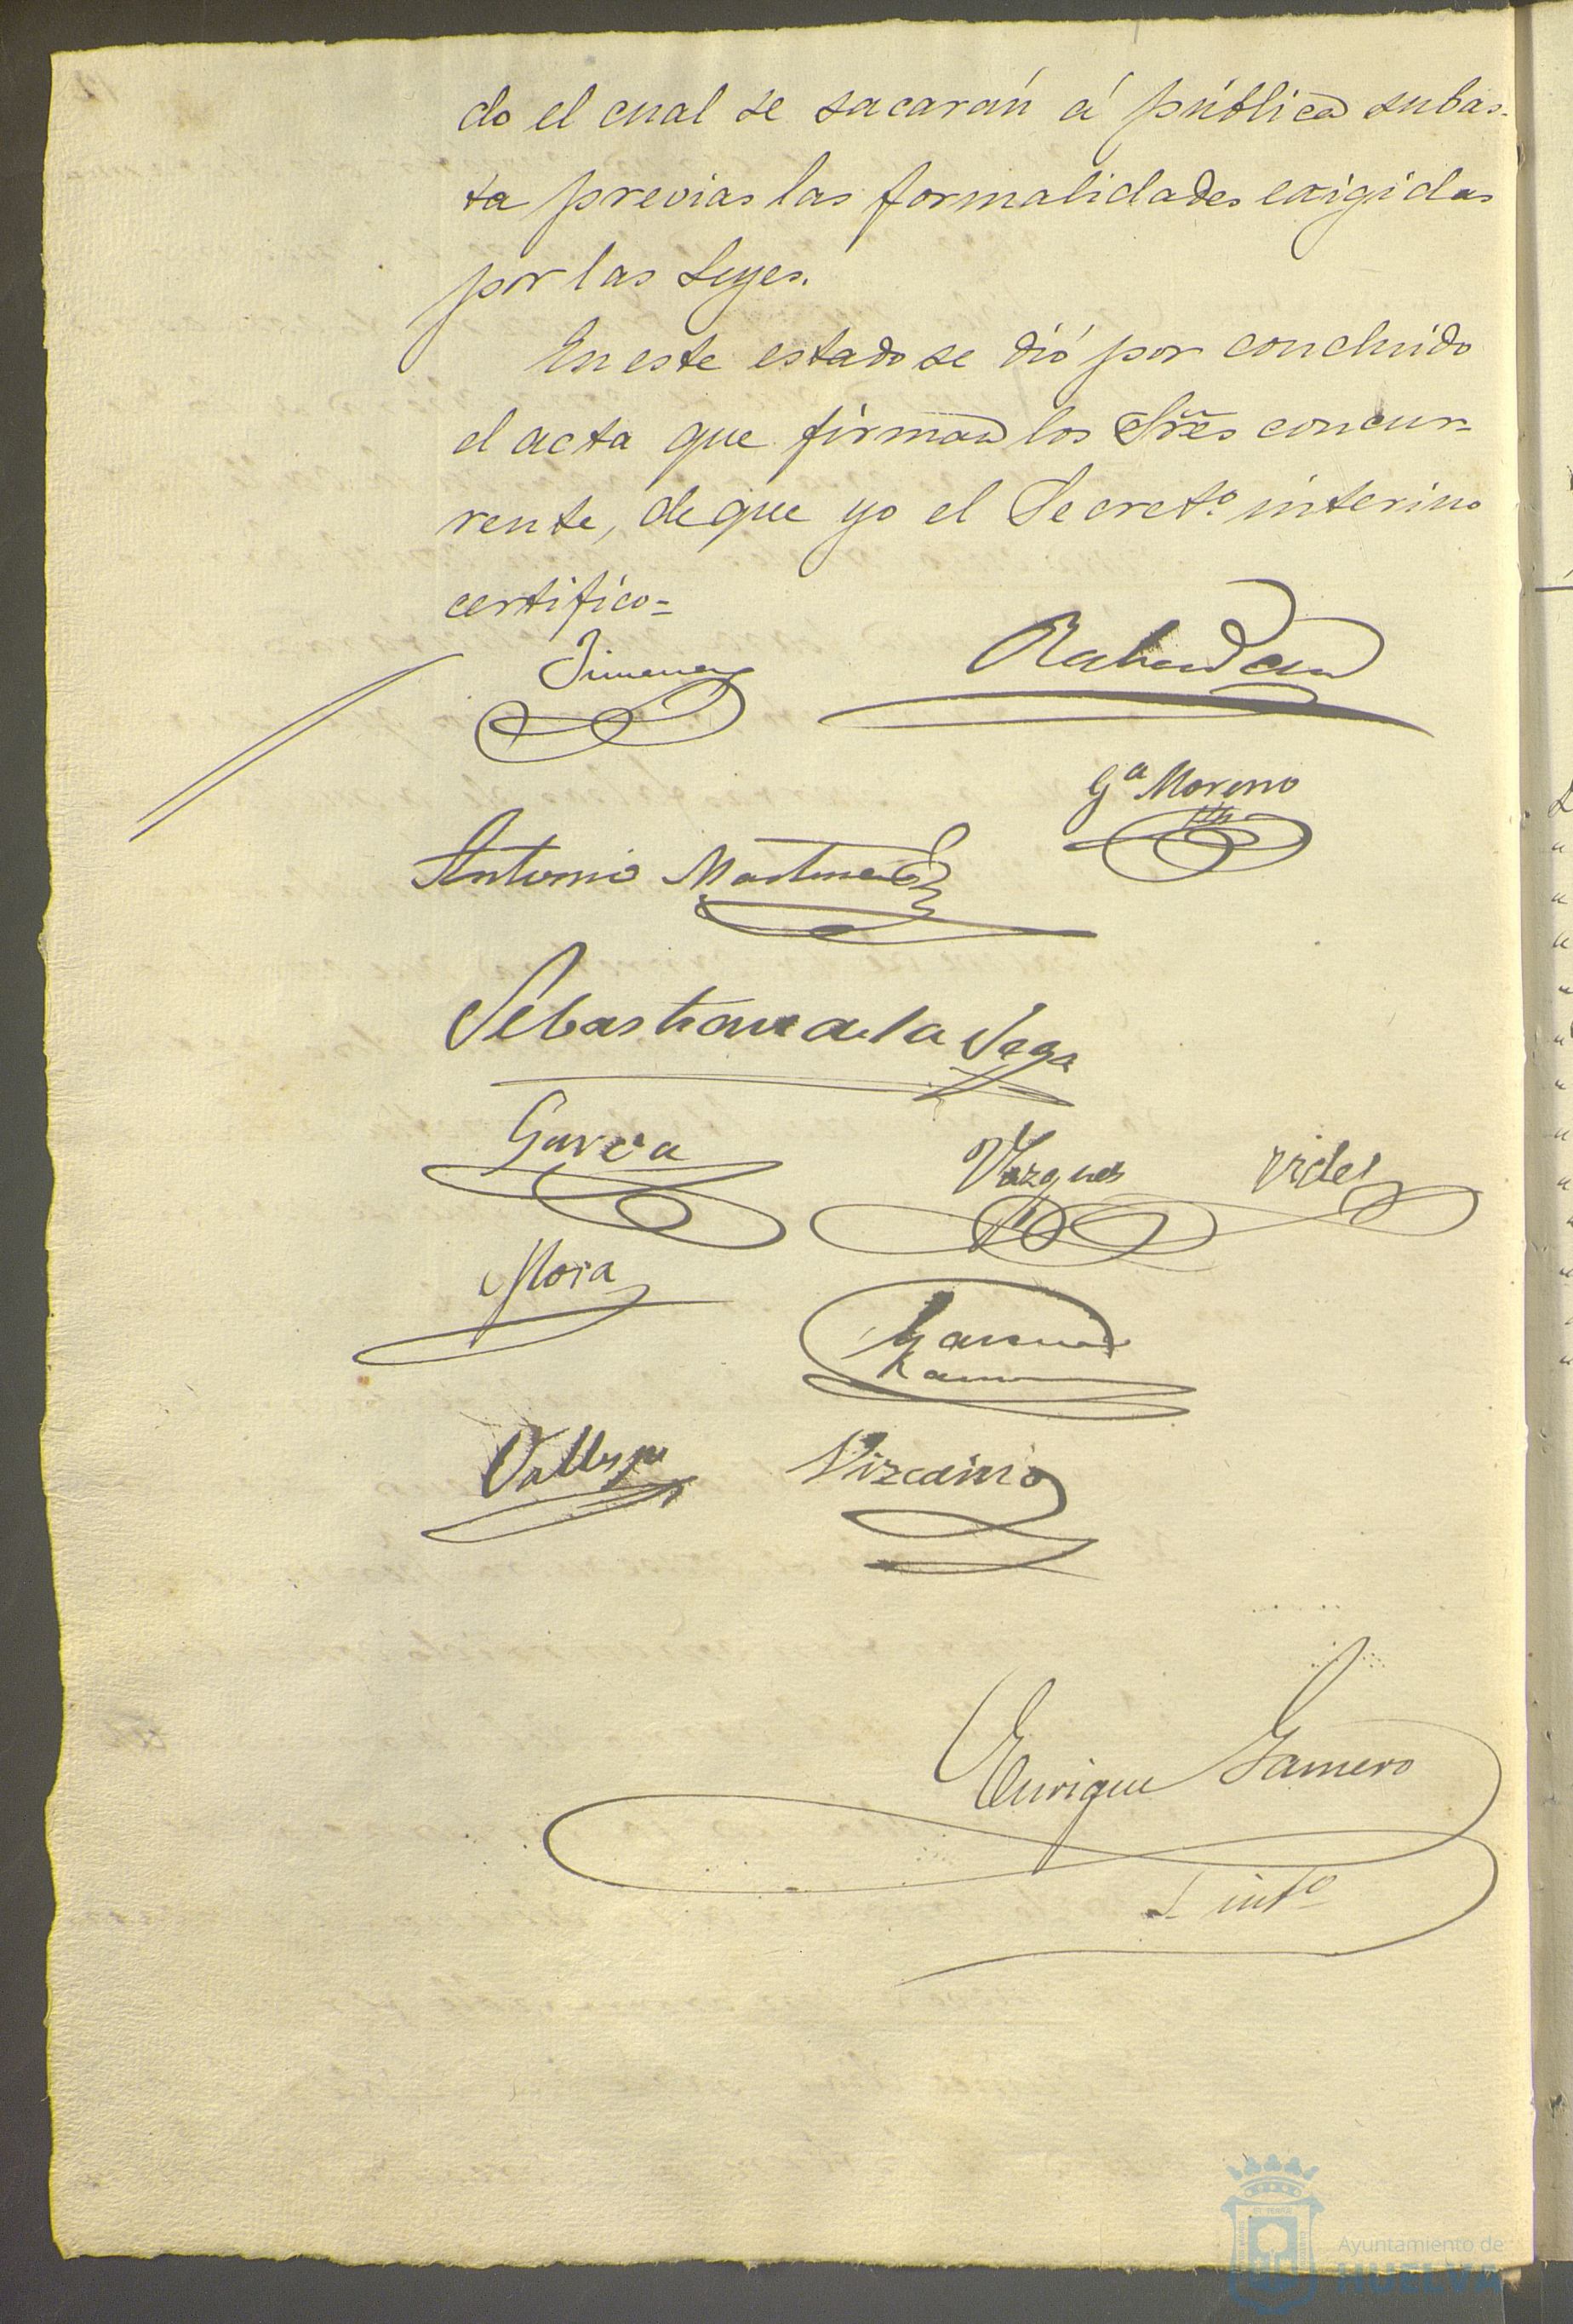 do el cual se sacarán á pública subas-
ta previas las formalidades exigidas
por las Leyes.
En este estado se dió por concluido
el acta que firman los Sres concur-
rente, de que yo el Secretº interino
certifico=
Jimenez
Gª Moreno
Antonio Martinez
Sebastian de la Vega
Garcia Vazquez Videl
Mora
Vizcaino
Enrique Gamero
S. intº
Ayuntamiento de
HUELVA